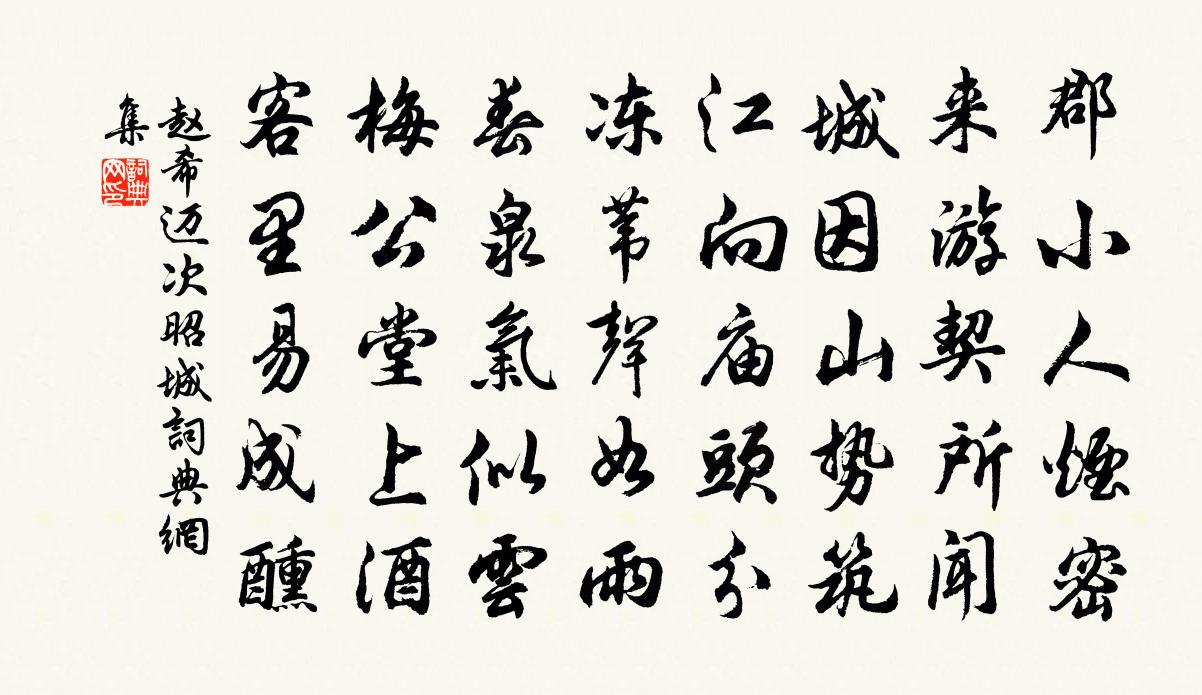 郡小人煙密
来游契所闻
城因山势筑
江向庙頭分
冻苇聲如雨
春泉氣似雲
梅公堂上酒
客里易成醺
赵希迈次昭城詞典網
集
詞典
网印